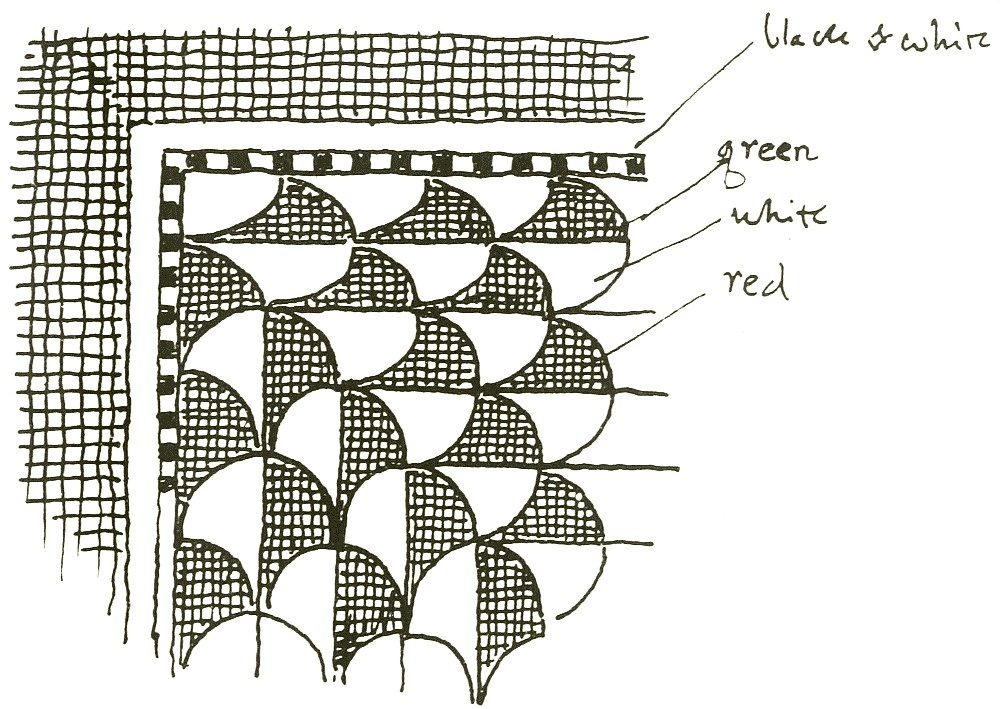 black & white
green
white
red